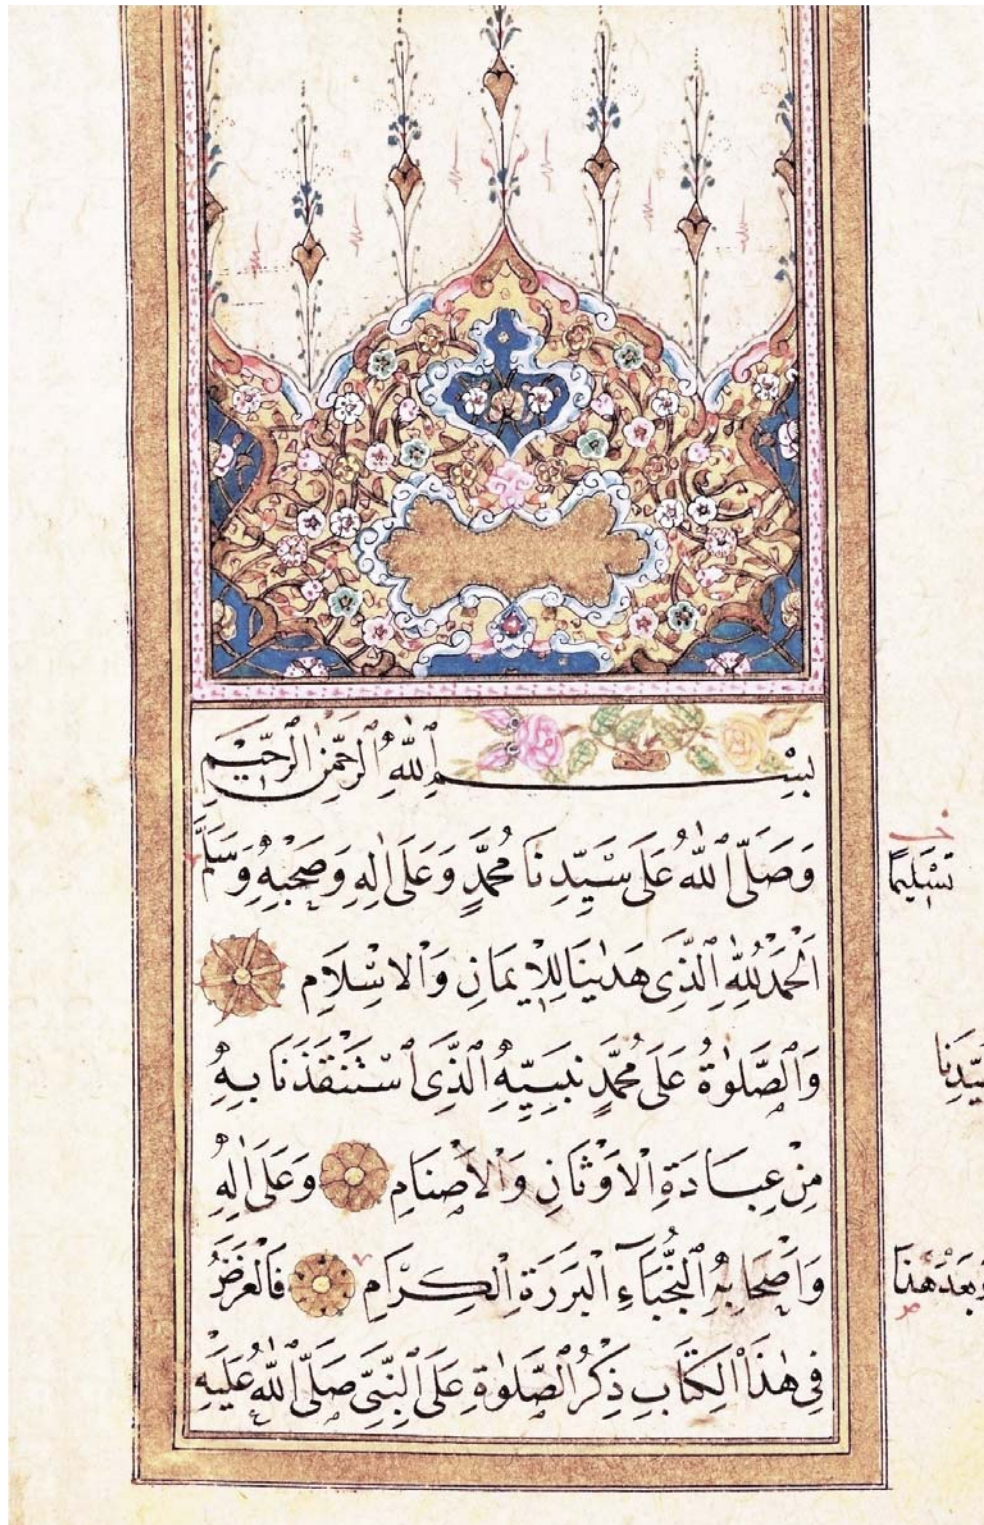 بِسْمِ ٱللّٰهِ ٱلرَّحْمٰنِ ٱلرَّحِيمِ
وَصَلَّى ٱللّٰهُ عَلَى سَيِّدِنَا مُحَمَّدٍ وَعَلَى اٰلِهِ وَصَحْبِهِ وَسَلَّمَ
تَسْلِيمًا
اَلْحَمْدُ لِلّٰهِ ٱلَّذِى هَدٰينَا لِلْاِيمَانِ وَالْاِسْلَامِ
وَٱلصَّلٰوةُ عَلَى مُحَمَّدٍ نَبِيِّهِ ٱلَّذِى ٱسْتَنْقَذَنَا بِهِ
مِنْ عِبَادَةِ الْاَوْثَانِ وَالْاَصْنَامِ وَعَلَى اٰلِهِ
وَاَصْحَابِهِ ٱلنُّجَبَآءِ ٱلْبَرَرَةِ ٱلْكِرَامِ فَالْغَرَضُ
وَبَعْدَ هٰذَا
فِى هٰذَا ٱلْكِتَابِ ذِكْرُ ٱلصَّلٰوةِ عَلَى ٱلنَّبِىِّ صَلَّى ٱللّٰهُ عَلَيْهِ